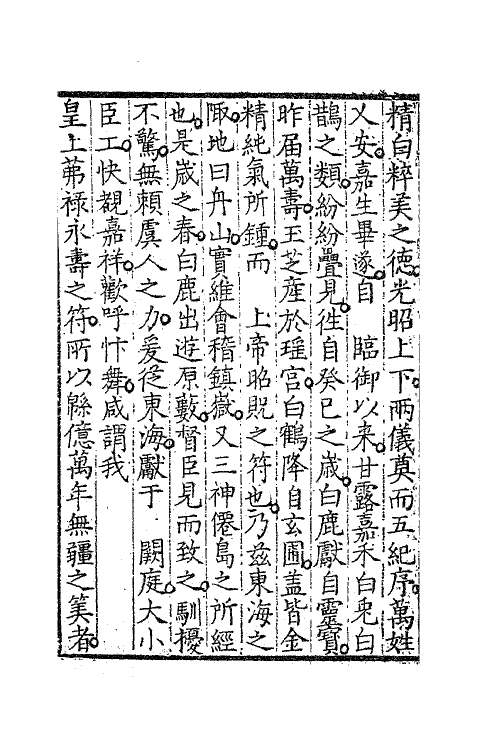 精白粹美之德光昭上下兩儀奠而五紀序萬姓
乂安嘉生畢遂自　臨御以来甘露嘉禾白兎白
鵲之類紛紛疊見徃自癸巳之歳白鹿獻自靈寳
昨届萬壽玉芝産於瑶宫白鶴降自玄圃盖皆金
精純氣所鍾而　上帝昭貺之符也乃兹東海之
陬地曰舟山實維會稽鎮嶽又三神僊島之所經
也是歳之春白鹿出遊原藪督臣見而致之馴擾
不驚無頼虞人之力爰從東海獻于　闕庭大小
臣工快覩嘉祥歡呼忭舞咸謂我
皇上茀禄永壽之符所以綿億萬年無疆之筭者